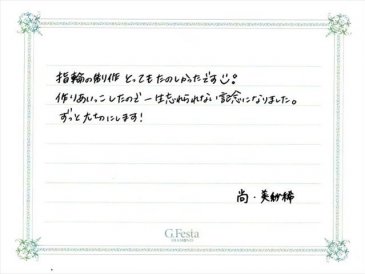 指輪の制作 とってもたのしかったです☺!
作りあいっこしたので一生忘れられない記念になりました。
ずっと大切にします!
尚・美紗稀
G.Festa